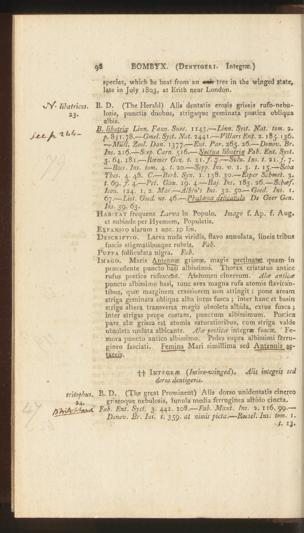 98 BOMBYX. (Dentigeri. Integræ.)
species, which he beat from an tree in the winged state,
late in July 1803, at Erith near London.
N. libatrix.
23.
B. D. (The Herald) Alis dentatis erosis griseis rufo-nebu-
losis, punctis duobus, strigaque geminata postica obliqua
albis.
see p 244
B. libatrix Linn. Faun. Suec. 1143.—Linn. Syst. Nat. tom. 2.
p. 831. 78.—Gmel. Syst. Nat. 2441.—Villars Ent. 2. 185. 136.
—Müll. Zool. Dan. 1377.—Ent. Par. 265. 26.—Donov. Br.
Ins. 216.—Scop. Carn. 516.—Noctua libatrix Fab. Ent. Syst.
3. 64. 181.—Rœmer Gen. t. 21. f. 7.—Sulz. Ins. t. 21. f. 7.
—Rœs. Ins. tom. 4. t. 20.—Sepp. Ins. v. 1. 3. t. 15.—Seba
Thes. 4. 48. C.—Berk. Syn. 1. 138. 30.—Esper Schmet. 3.
t. 69. f. 4.—Pet. Gaz. 29. 4.—Raj. Ins. 183. 36.—Schæf.
Icon. 124. 1. 2. Mas.—Albin's Ins. 32. 50.—Goed. Ins. 1.
67.—List. Goed. no. 46.—Phalæna découpée De Geer Gen.
Ins. 39. 63.
Habitat frequens Larva in Populo. Imago f. Ap. f. Aug.
et subinde per Hyemem, Populeta.
Expansio alarum 1 unc. 10 lin.
Descriptio. Larva nuda viridis, flavo annulata, lineis tribus
fuscis stigmatibusque rubris. Fab.
Puppa folliculata nigra. Fab.
Imago. Maris Antennæ griseæ, magis pectinatæ quam in
præcedente puncto basi albissimo. Thorax cristatus antice
rufus postice rufescens. Abdomen cinereum. Alæ anticæ
puncto albissimo basi, tunc area magna rufa atomis flavican-
tibus, quæ marginem crassiorem non attingit; pone aream
striga geminata obliqua alba intus fusca; inter hanc et basin
striga altera transversa magis obsoleta albida, extus fusca;
inter strigas prope costam, punctum albissimum. Postica
pars alæ grisea est atomis saturatioribus, cum striga valde
obsoleta undata albicante. Alæ posticæ integræ fuscæ. Fe-
mora puncto antico albissimo. Pedes supra albissimi ferru-
gineo fasciati. Femina Mari simillima sed Antennis se-
taceis.
†† Integræ (Intire-winged). Alis integris sed
dorso dentigeris.
tritophus.
24.
B. D. (The great Prominent) Alis dorso unidentatis cinereo
griseoque nebulosis, lunula media ferruginea albido cincta.
Fab. Ent. Syst. 3. 442. 108.—Fab. Mant. Ins. 2. 116. 99.—
Donov. Br. Ins. t. 359. at nimis picta.—Rœsel. Ins. tom. 1.
t. 13.
47